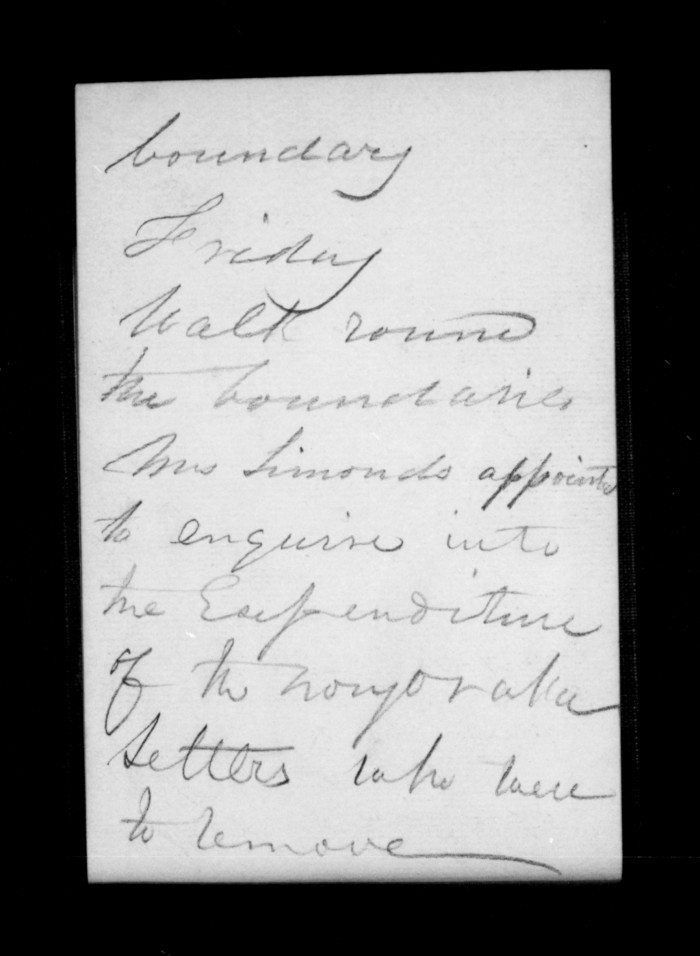 boundary
Friday
Walk round
the boundaries
Mrs Simonds appointed
to enquire into
the Expenditure
of the
Settlers who were
to remove